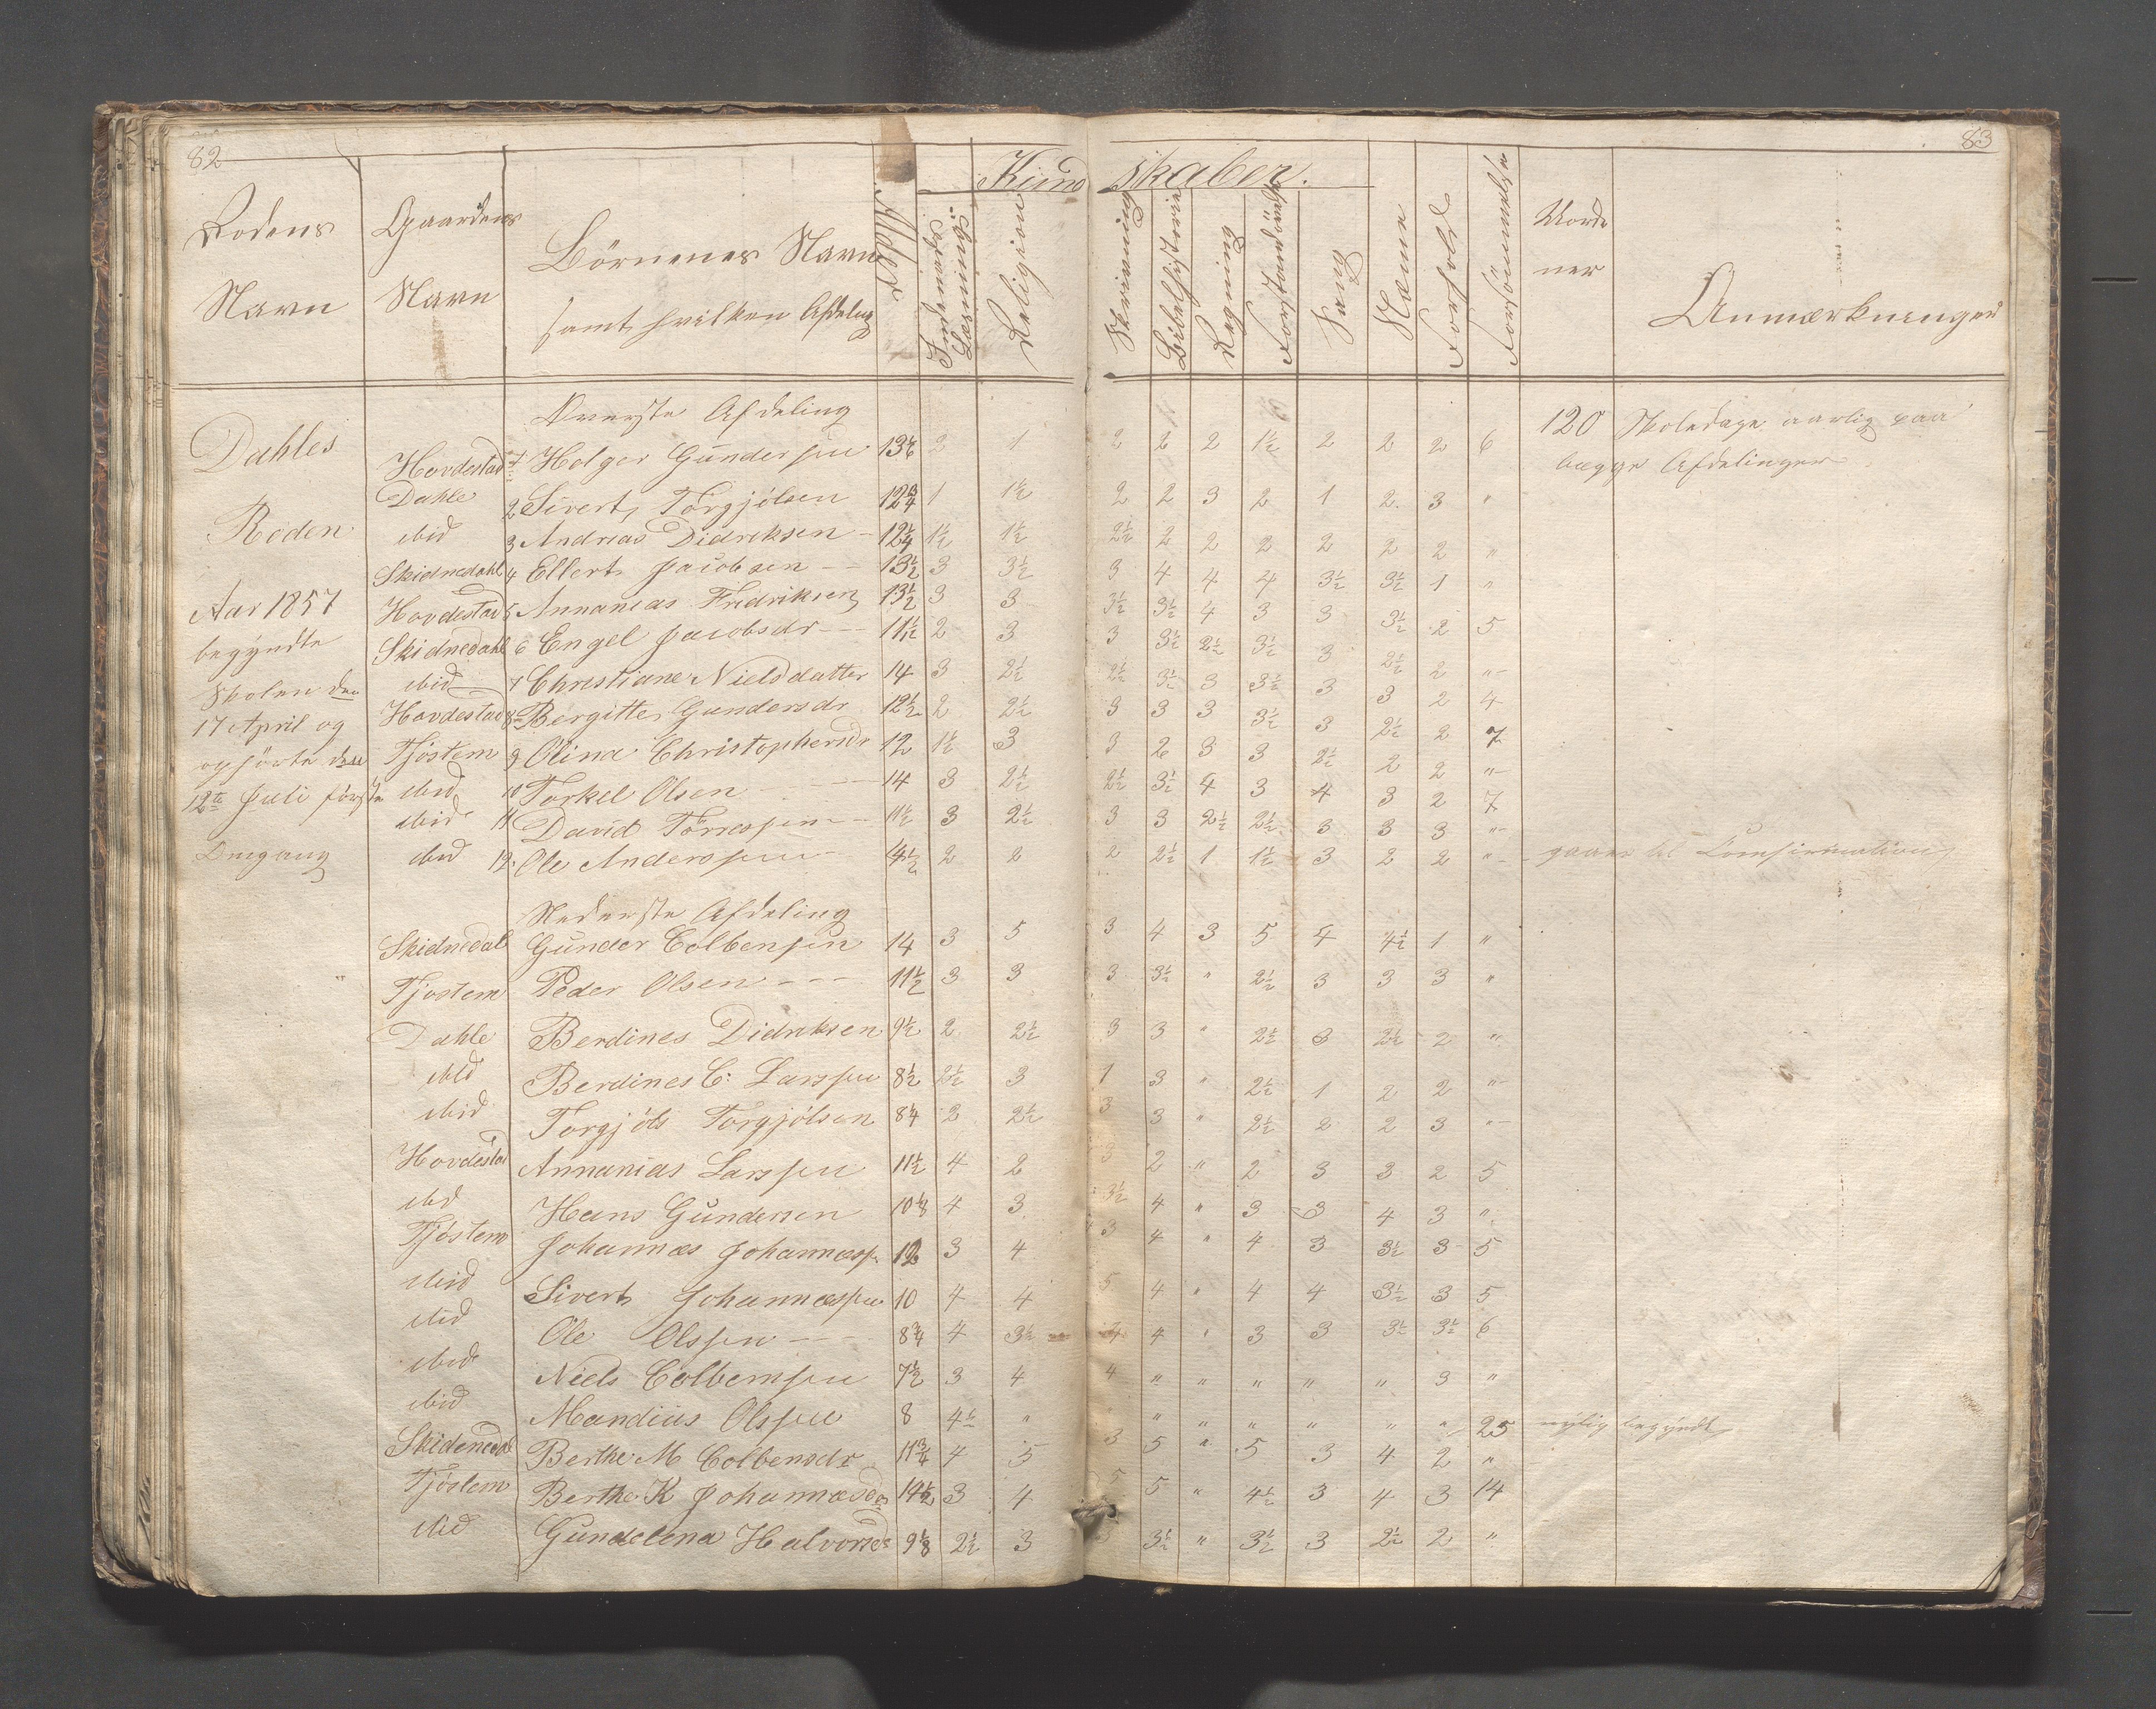 82
83
Rodens Navn
Gaardens Navn
Börnenes Navn samt hvilken Afdeling
Alder
Kundskaber.
Indenads Læsning
Religion
Skrivning
Bibelhistorie
Regning
Forstandsövelse
Sang
Næme
Forhold
Forsömmelse
Anmærkninger
Dahles
Roden
Aar 1857
begyndte
Skolen den
17 April og
ophörte den
12te Juli förste
Omgang
Överste Afdeling
Hovdestad 1 Holger Gundersen 13 1/6 2 1 2 2 2 1½ 2 2 2 6 120 Skoledage aarlig paa
begge Afdelinger
Dahle 2 Sivert Torgjölsen 12¾ 1 1½ 2 2 3 2 1 2 3 "
ibid 3 Andreas Didriksen 12¼ 1½ 1½ 2½ 2 2 2 2 2 2 "
Skidnedahl 4 Ellert Jacobsen 13½ 3 3½ 3 4 4 4 3½ 3½ 1 "
Hovdestad 5 Annanias Fredriksen 13½ 3 3 3½ 3½ 4 3 3 3½ 2 5
Skidnedahl 6 Engel Jacobsdr 11½ 2 3 3 3½ 2½ 3½ 3 2½ 2 "
ibid 7 Christiane Nielsdatter 14 3 2½ 2½ 3½ 3 3½ 3 3 2 4
Hovdestad 8 Bergitte Gundersdr 12½ 2 2½ 3 3 3 3½ 3 2½ 2 7
Tjöstem 9 Olina Christophersdr 12 1½ 3 3 2 3 3 2½ 2 2 "
ibid 10 Torkel Olsen 14 3 2½ 2½ 3½ 4 3 4 3 2 7
ibid 11 David Törresen 11½ 3 2½ 3 3 2½ 2½ 3 3 3 "
ibid 12 Ole Anderssen 14½ 2 2 2 2½ 1 1½ 3 2 2 " gaaer til Comfirmation
Nederste Afdeling
Skidnedal Gunder Colbensen 14 3 5 3 4 3 5 4 4½ 1 "
" Tjostem Peder Olsen 11½ 3 3 3 3½ " 2½ 3 3 3 "
Dahle Berdines Didriksen 9½ 2 2½ 3 3 " 2½ 3 2½ 2 "
ibid Berdines C: Larssen 8½ 2½ 3 1 3 " 2½ 1 2 2 "
ibid Torgjöls Torgjölsen 8¼ 2 2½ 3 3 " 2½ 2 2 3 "
Hovdestad Annanias Larssen 11½ 4 2 3 2 " 2 3 3 2 5
ibd Hans Gundersen 10⅛ 4 3 3½ 4 " 3 3 4 3 "
Tjöstem Johannes Johannessn 12 3 4 3 4 " 4 3 3½ 3 5
ibid Sivert Johannessen 10 4 4 5 4 " 4 4 3½ 3 5
ibid Ole Olssen 8¾ 4 3½ 4 4 " 3 3 3½ 3½ 6
ibid Niels Colbensen 7½ 3 4 4 " " " " " 3 "
ibid Mandius Olssen 8 4½ " " " " " " " 25 nylig begyndt
Skidenedal Berthe M Colbensdr 11¾ 4 5 3 5 " 5 3 4 2 "
Tjöstem Berthe K Johannesdr 14½ 3 4 5 5 " 4½ 3 4 3 14
ibid Gundelena Halvorsdr 9⅛ 2½ 3 3 3½ " 3½ 3 2½ 2 "